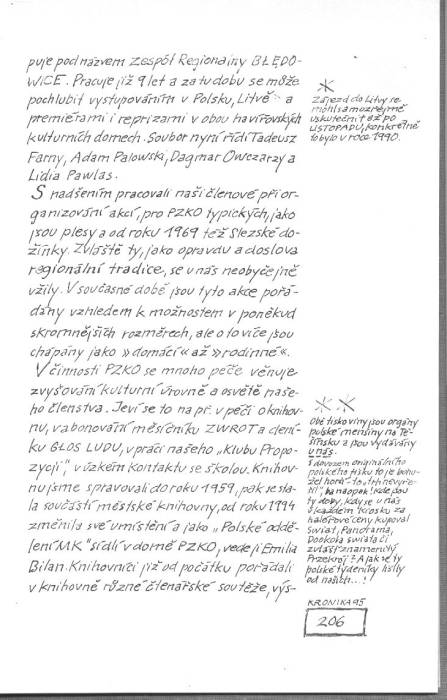 puje pod názvem Zespół Regionalny BŁĘDO-
WICE. Pracuje již 9 let a za tu dobu se může
pochlubit vystupováním v Polsku, Litvě * a
premiérami i reprízami v obou havířovských
kulturních domech. Soubor nyní řídí Tadeusz
Farny, Adam Palowski, Dagmar Owczarzy a
Lidia Pawlas.
S nadšením pracovali naši členové při or-
ganizování akcí, pro PZKO typických, jako
jsou plesy a od roku 1969 též Slezské do-
žínky. Zvláště ty, jako opravdu a doslova
regionální tradice, se u nás neobyčejně
vžily. V současné době jsou tyto akce pořá-
dány vzhledem k možnostem v poněkud
skromnějších rozměrech, ale o to více jsou
chápány jako »domácí« až »rodinné«.
V činnosti PZKO se mnoho péče věnuje
zvyšování kulturní úrovně a osvětě naše-
ho členstva. Jeví se to na př. v péči o knihov-
nu, v abonování měsíčníku ZWROT a dení-
ku GŁOS LUDU, v práci našeho „Klubu Propo-
zycji“, v úzkém kontaktu se školou. Knihov-
nu jsme spravovali do roku 1959, pak se sta-
la součástí městské knihovny, od roku 1994
změnila své umístění a jako „Polské oddě-
lení MK“ sídlí v domě PZKO, vede ji Emilia
Bilan. Knihovníci již od počátku pořádali
v knihovně různé čtenářské soutěže, výs-
*
Zájezd do Litvy se
mohl samozřejmě
uskutečnit až po
LISTOPADU, konkrétně
to bylo v roce 1990.
**
Obě tiskoviny jsou orgány
polské menšiny na Tě-
šínsku a jsou vydávány
u nás.
S dovozem originálního
polského tisku to je bohu-
žel horší – to „trh nevyře-
šil“, ba naopak! Kde jsou
ty doby, kdy se u nás
v každém kiosku za
haléřové ceny kupoval
Świat, Panorama,
Dookoła świata či
zvlášť znamenitý
Przekrój? A jak se ty
polské týdeníky lišily
od našich...!
KRONIKA 95
206